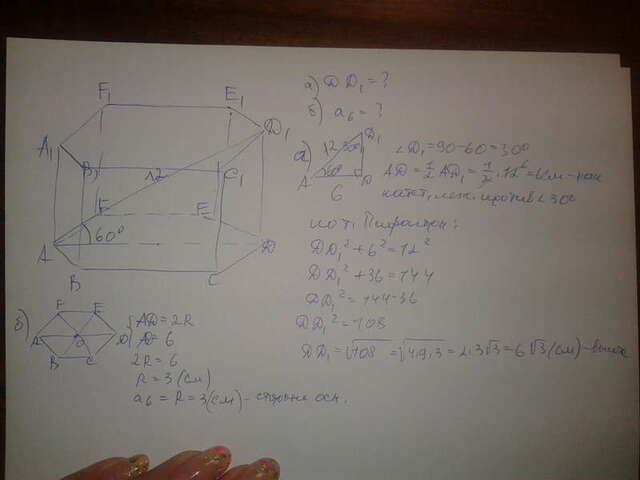 а) DD₁ = ?
б) a₆ = ?
F₁ E₁
A₁ D₁
B₁ C₁
12
F E
60°
A D
B C
а)
D₁
12 30°
60°
A D
6
∠D₁ = 90 - 60 = 30°
AD = 1/2 AD₁ = 1/2 · 12 = 6 см - как
катет, леж. против ∠30°
по т. Пифагора:
DD₁² + 6² = 12²
DD₁² + 36 = 144
DD₁² = 144 - 36
DD₁² = 108
DD₁ = √108 = √4·9·3 = 2·3√3 = 6√3 (см) - высота
б)
F E
A O D
B C
AD = 2R
AD = 6
2R = 6
R = 3 (см)
a₆ = R = 3 (см) - сторона осн.